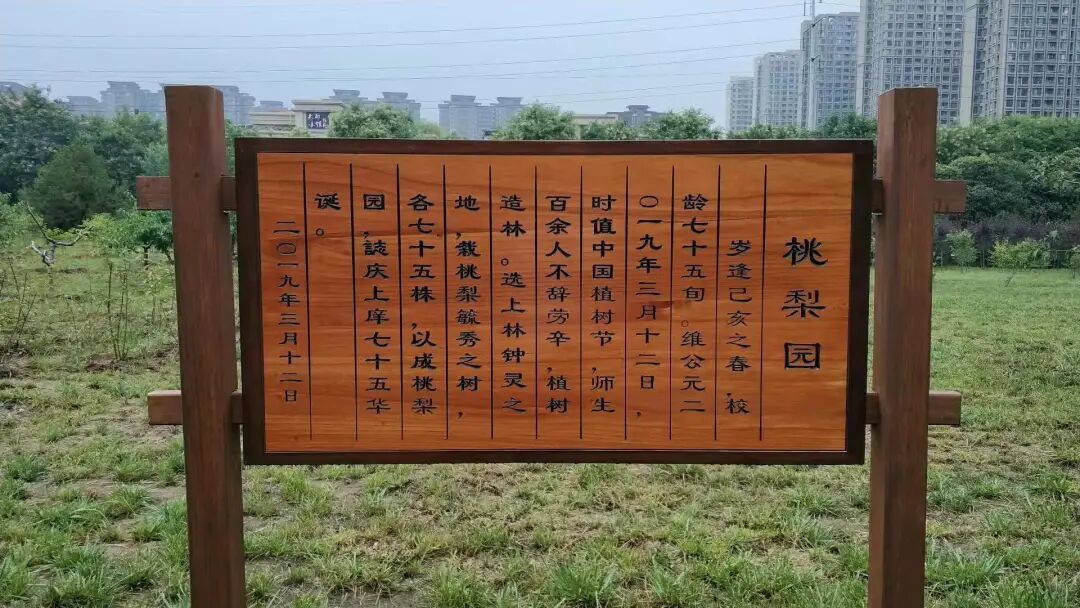 桃梨园
岁逢己亥之春，校
龄七十五旬。维公元二
〇一九年三月十二日，
时值中国植树节，师生
百余人不辞劳辛，植树
造林。选上林钟灵之
地，栽桃梨毓秀之树，
各七十五株，以成桃梨
园，誌庆上庠七十五华
诞。
二〇一九年三月十二日